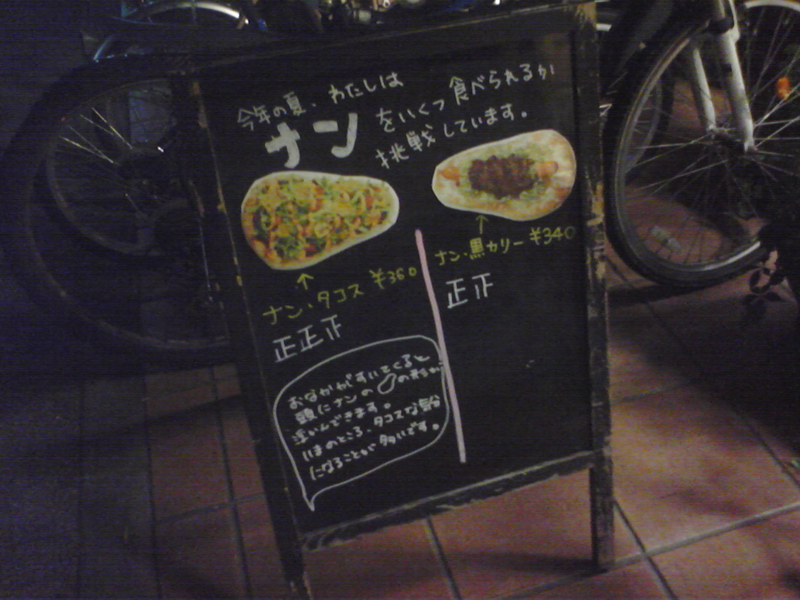 今年の夏、わたしは
ナンをいくつ食べられるか
挑戦しています。
↑
ナン・タコス ¥360
正正正
↑
ナン・黒カリー ¥340
正正
おなかがすいてくると
頭にナンの の形が
浮かんできます。
いまのところ、タコスな気分
になることが多いです。